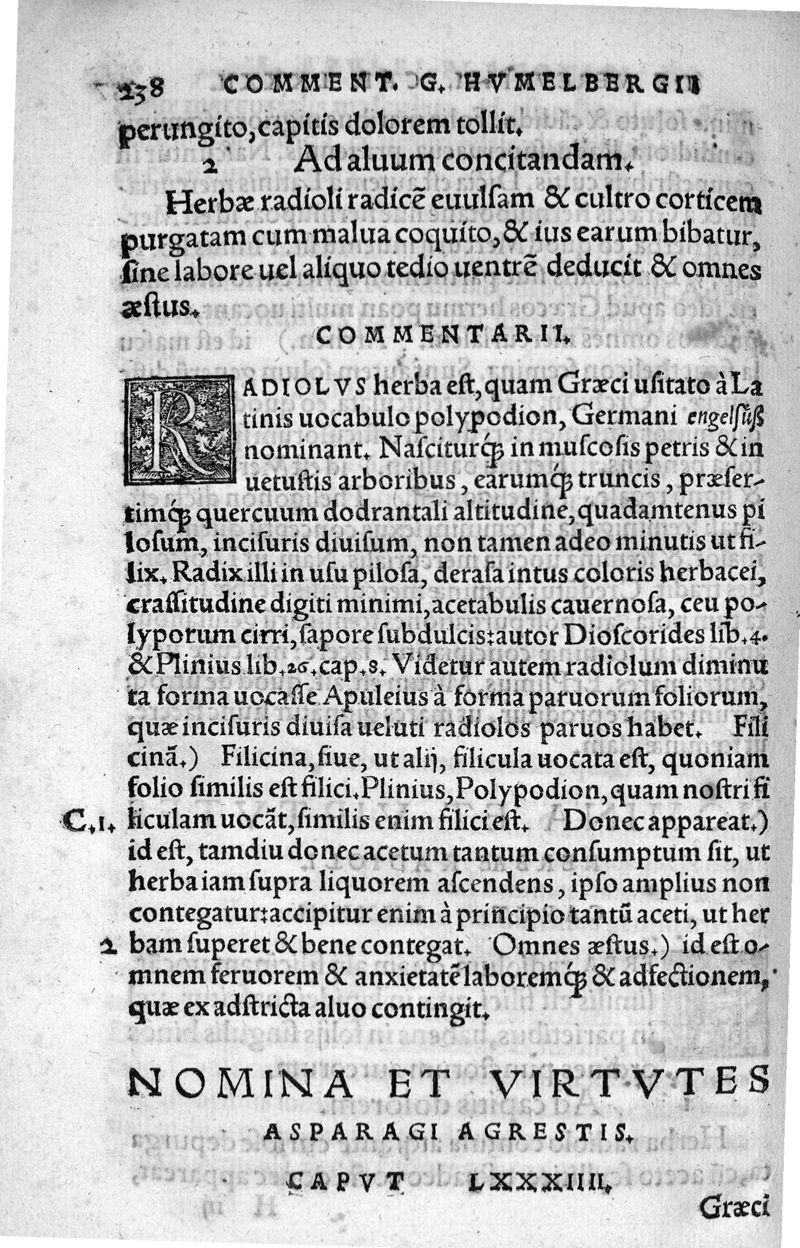 238 COMMENT. G. HVMELBERGII
perungito, capitis dolorem tollit.
2 Ad aluum concitandam.
Herbæ radioli radicē euulſam & cultro corticem
purgatam cum malua coquito, & ius earum bibatur,
ſine labore uel aliquo tedio uentrē deducit & omnes
æſtus.
COMMENTARII.
RADIOLVS herba eſt, quam Græci uſitato à La
tinis uocabulo polypodion, Germani engelſüß
nominant. Naſciturq́; in muſcoſis petris & in
uetuſtis arboribus, earumq́; truncis, præſer-
timq́; quercuum dodrantali altitudine, quadamtenus pi
loſum, inciſuris diuiſum, non tamen adeo minutis ut fi-
lix. Radix illi in uſu piloſa, deraſa intus coloris herbacei,
craſſitudine digiti minimi, acetabulis cauernoſa, ceu po-
lyporum cirri, ſapore ſubdulcis: autor Dioſcorides lib. 4.
& Plinius lib. 26. cap. 8. Videtur autem radiolum diminu
ta forma uocaſſe Apuleius à forma paruorum foliorum,
quæ inciſuris diuiſa ueluti radiolos paruos habet. Fili
cinā.) Filicina, ſiue, ut alij, filicula uocata eſt, quoniam
folio ſimilis eſt filici. Plinius, Polypodion, quam noſtri fi
C. 1. liculam uocāt, ſimilis enim filici eſt. Donec appareat.)
id eſt, tamdiu donec acetum tantum conſumptum ſit, ut
herba iam ſupra liquorem aſcendens, ipſo amplius non
contegatur: accipitur enim à principio tantū aceti, ut her
2 bam ſuperet & bene contegat. Omnes æſtus.) id eſt o-
mnem feruorem & anxietatē laboremq́; & adfectionem,
quæ ex adſtricta aluo contingit.
NOMINA ET VIRTVTES
ASPARAGI AGRESTIS.
CAPVT LXXXIIII.
Græci